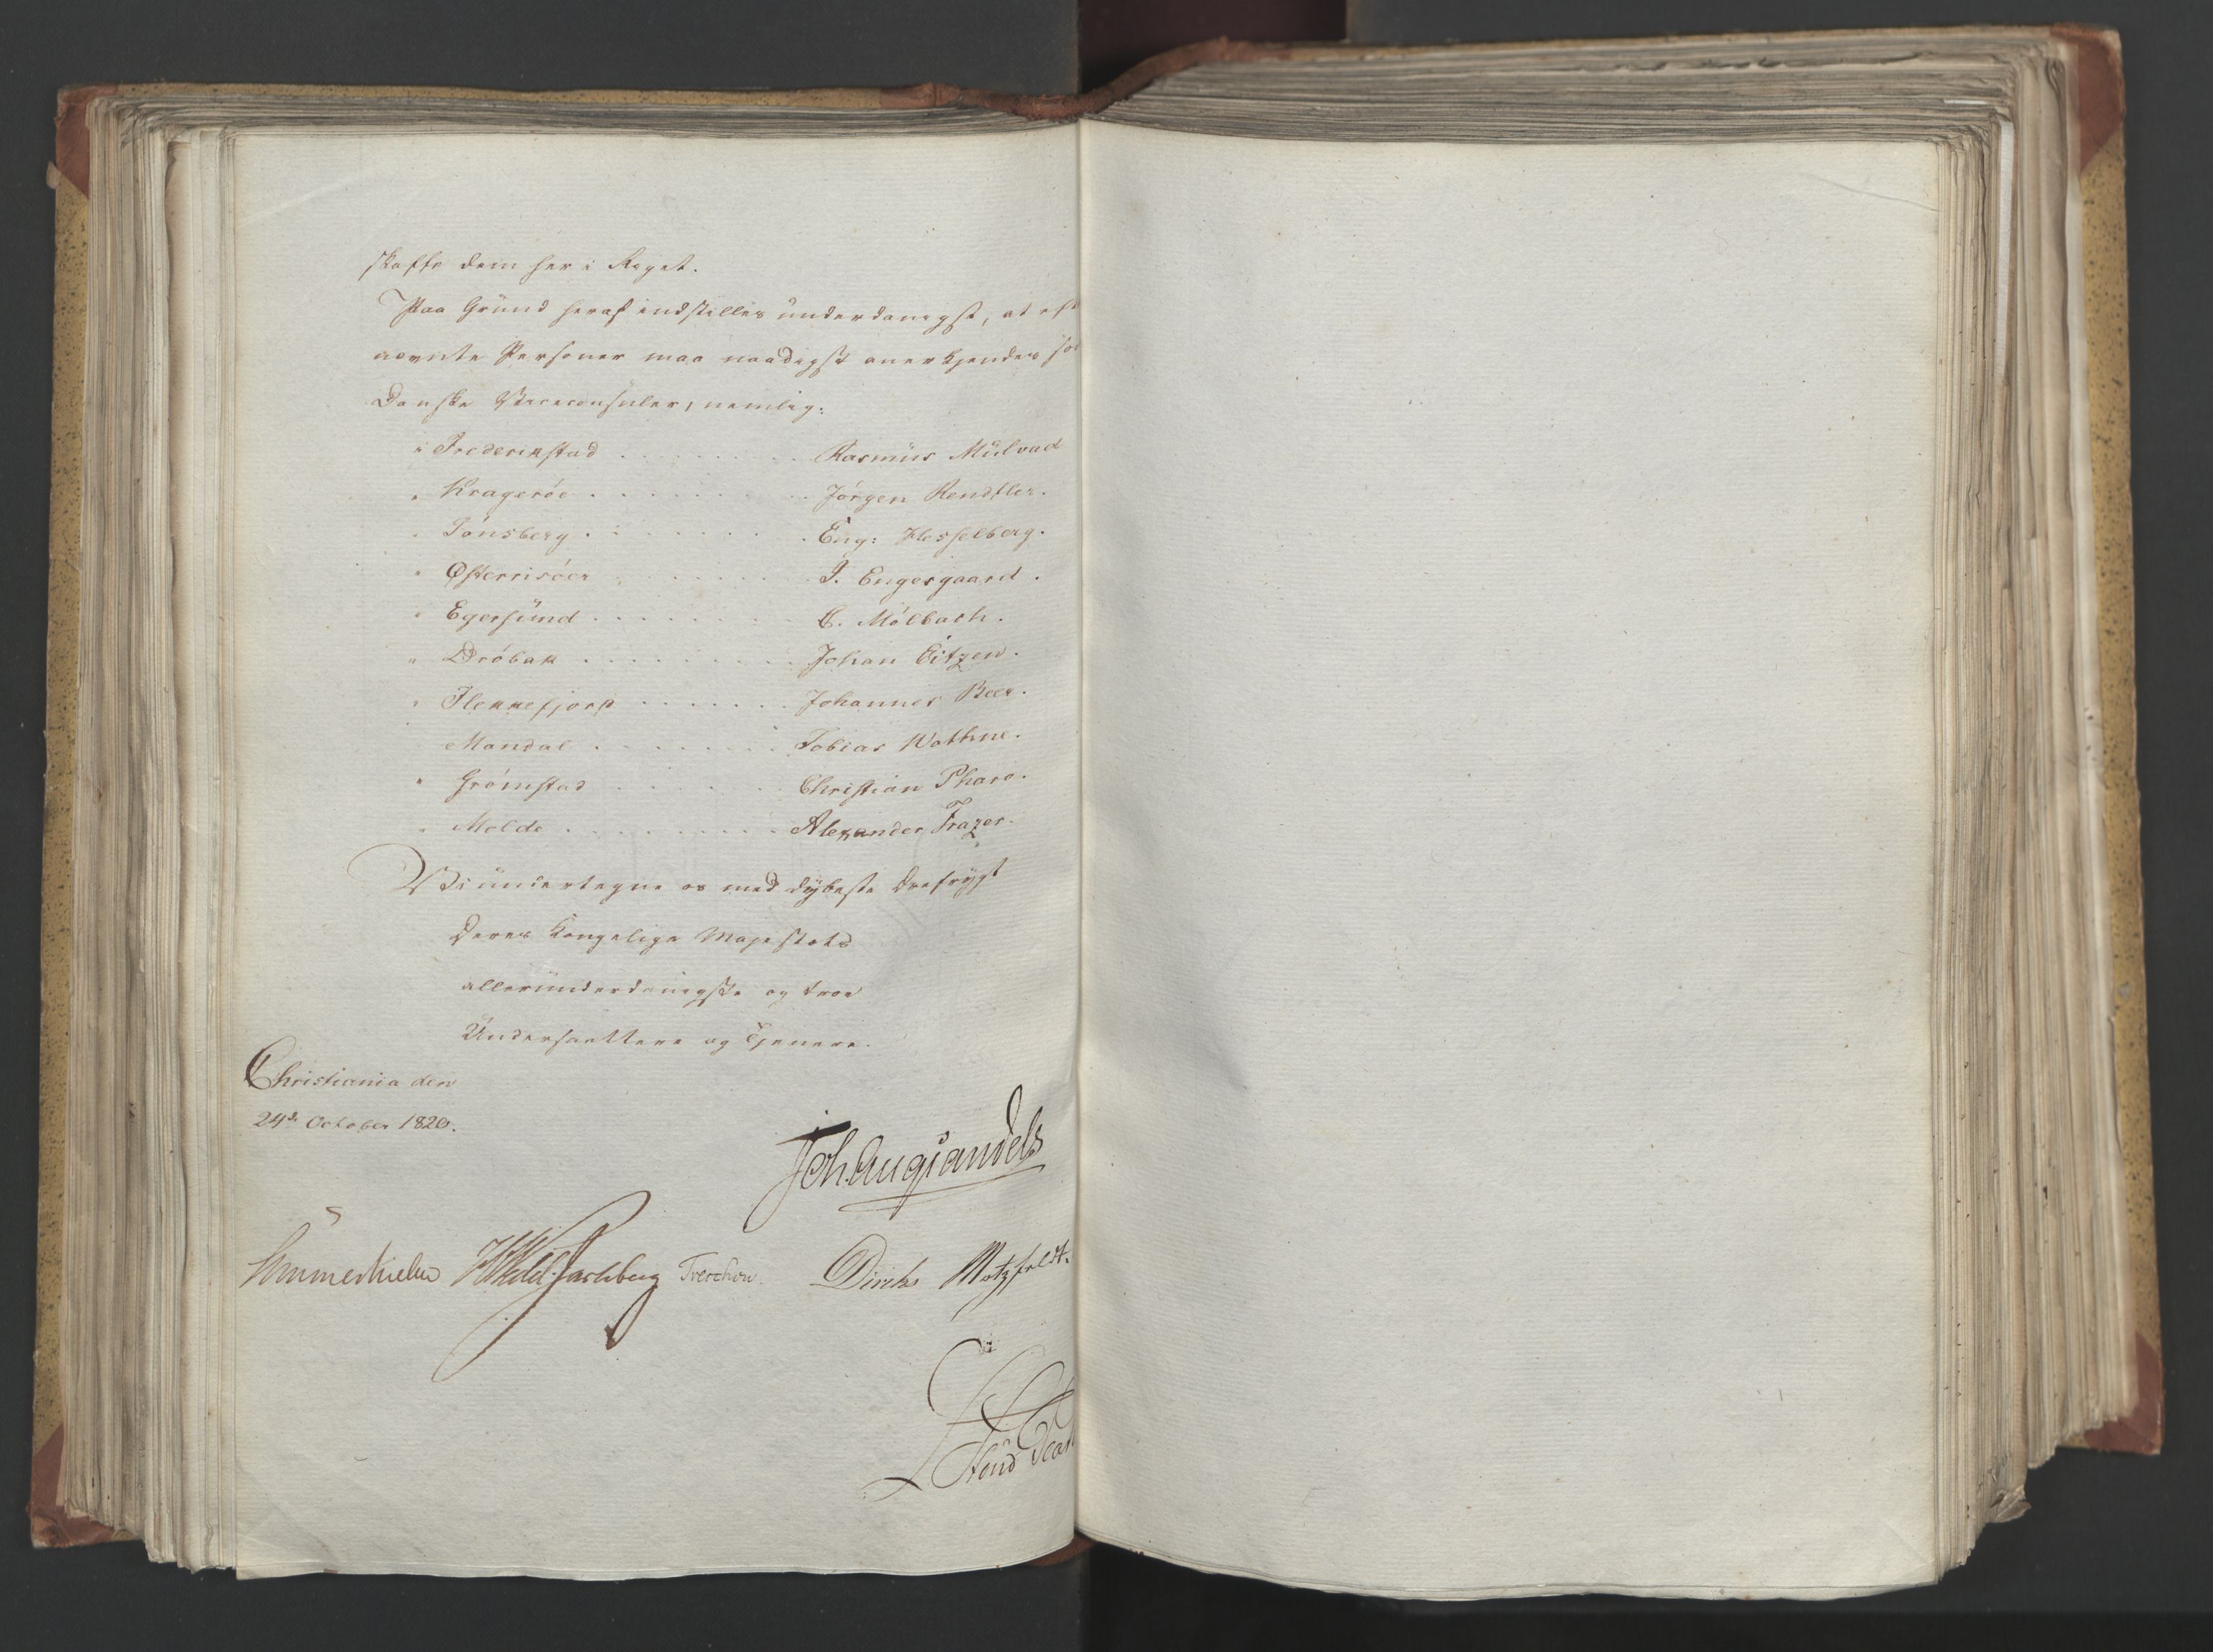 skaffe dem her i Riget.
Paa Grund heraf indstilles underdanigst, at eft
nævnte Personer maa naadigst anerkjendes so
Danske Viceconsuler, nemlig:
i Frederikstad . . . . . . . . Rasmus Mülvad
" Kragerøe . . . . . . . . Jørgen Rendtler.
" Tønsberg . . . . . . . . Eng: Hesselberg.
" Østerrisøer . . . . . . . . J. Engesgaard.
" Egersund . . . . . . . . C. Mølbach.
" Drøbak . . . . . . . . Johan Eitzen.
" Flekkefjord . . . . . . . . Johannes Beer.
" Mandal . . . . . . . . Tobias Wathne.
" Grømstad . . . . . . . . Christian Pharo.
" Molde . . . . . . . . Alexander Frazer.
Vi undertegne os med dybeste Ærefrygt
Deres Kongelige Majestæts
allerunderdanigste og troe
Undersaattere og Tjenere.
Christiania den
24d October 1820.
Joh. Aug Sandels
Sommerhielm HWedel Jarlsberg Treschow. Diriks Motzfeldt.